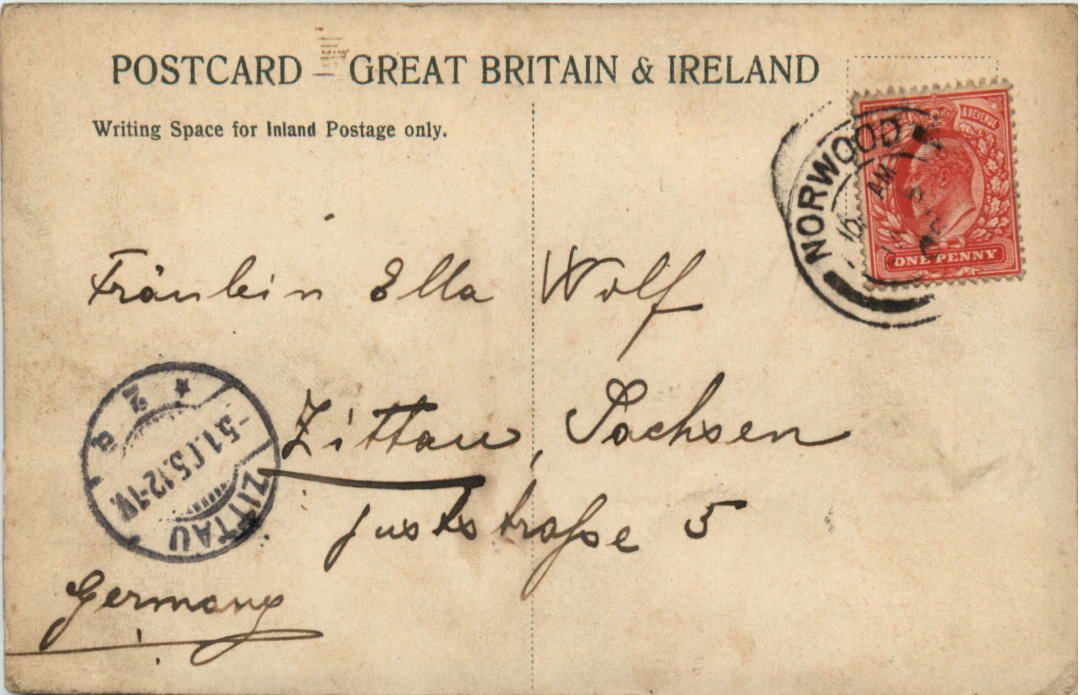 POSTCARD – GREAT BRITAIN & IRELAND
Writing Space for Inland Postage only.
& REVENUE
NORWOOD
AM
ONE PENNY
Fräulein Ella Wolf
Zittau, Sachsen
Juststraße 5
ZITTAU
Germany